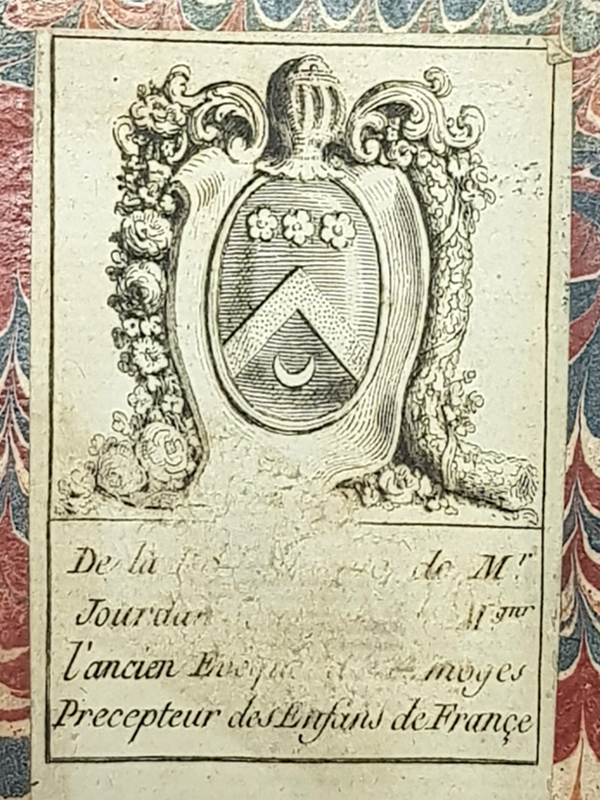 De la de Mr
Jourdan Mgnr
l'ancien Eveque de Limoges
Precepteur des Enfans de Françe